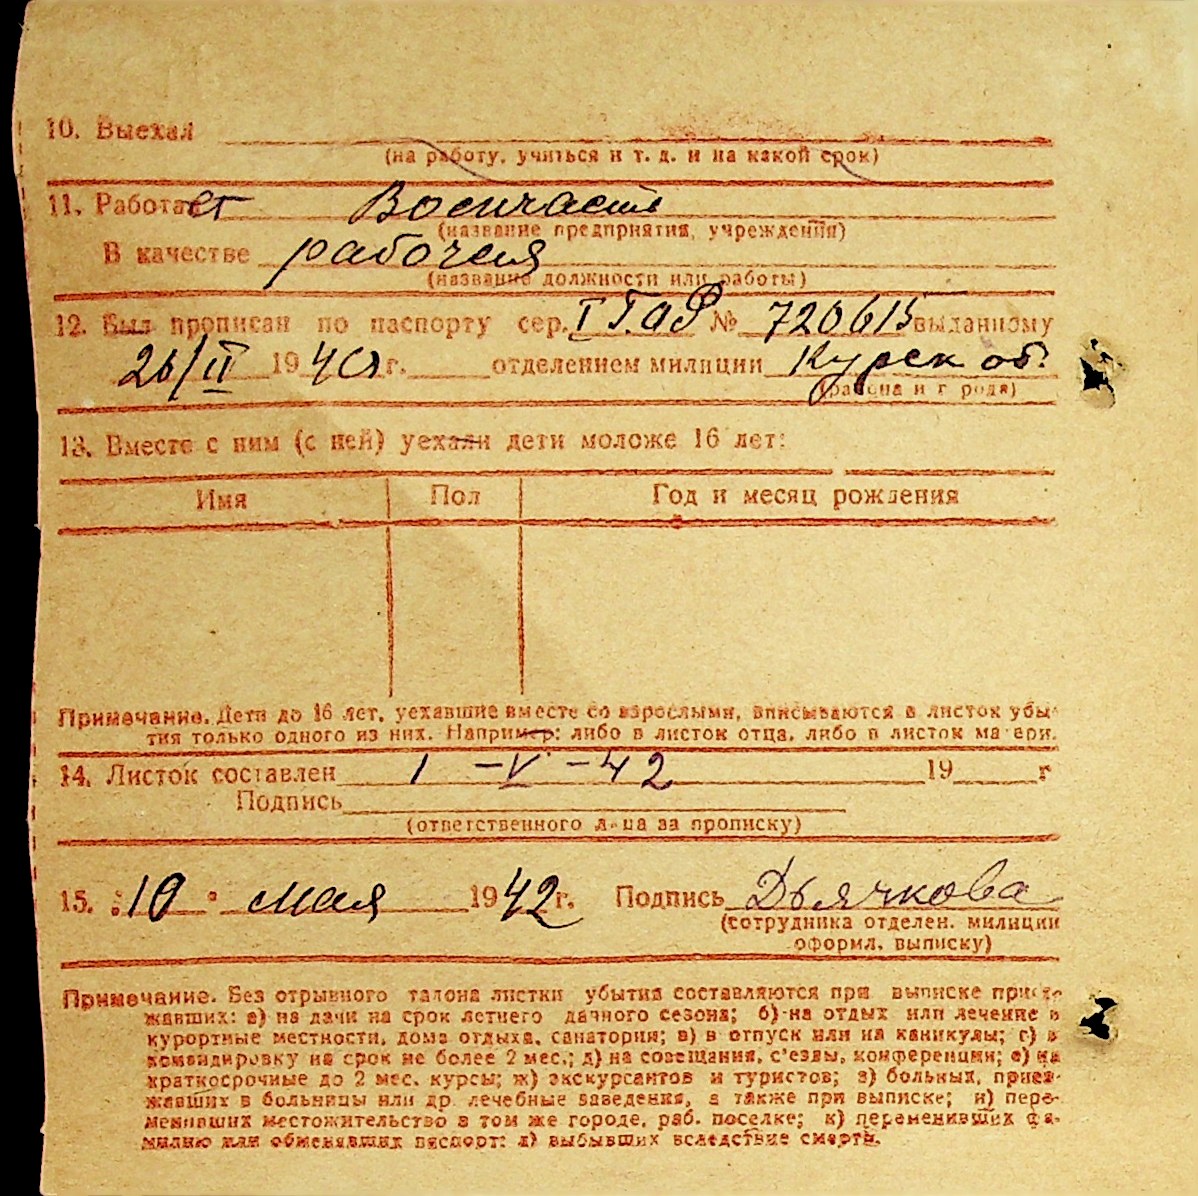 10. Выехал
(на работу, учиться и т. д. и на какой срок)
11. Работает Воснчасть
(название предприятия, учреждения)
В качестве рабочея
(название должности или работы)
12. Был прописан по паспорту сер. I № 720615 выданному
26/II 1940 г. отделением милиции Курск об.
(района и города)
13. Вместе с ним (с ней) уехали дети моложе 16 лет:
Имя Пол Год и месяц рождения
Примечание. Дети до 16 лет, уехавшие вместе со взрослыми, вписываются в листок убы-
тия только одного из них. Например: либо в листок отца, либо в листок матери.
14. Листок составлен 1 -V- 42 19 г
Подпись
(ответственного лица за прописку)
15. "10" мая 1942 г. Подпись Дьячкова
(сотрудника отделен. милиции
оформл. выписку)
Примечание. Без отрывного талона листки убытия составляются при выписке приез-
жавших: а) на дачи на срок летнего дачного сезона; б) на отдых или лечение в
курортные местности, дома отдыха, санатории; в) в отпуск или на каникулы; г) в
командировку на срок не более 2 мес.; д) на совещания, с'езды, конференции; е) на
краткосрочные до 2 мес. курсы; ж) экскурсантов и туристов; з) больных, приез-
жавших в больницы или др. лечебные заведения, а также при выписке; и) пере-
менивших местожительство в том же городе, раб. поселке; к) переменивших фа-
милию или обменявших паспорт; л) выбывших вследствие смерти.